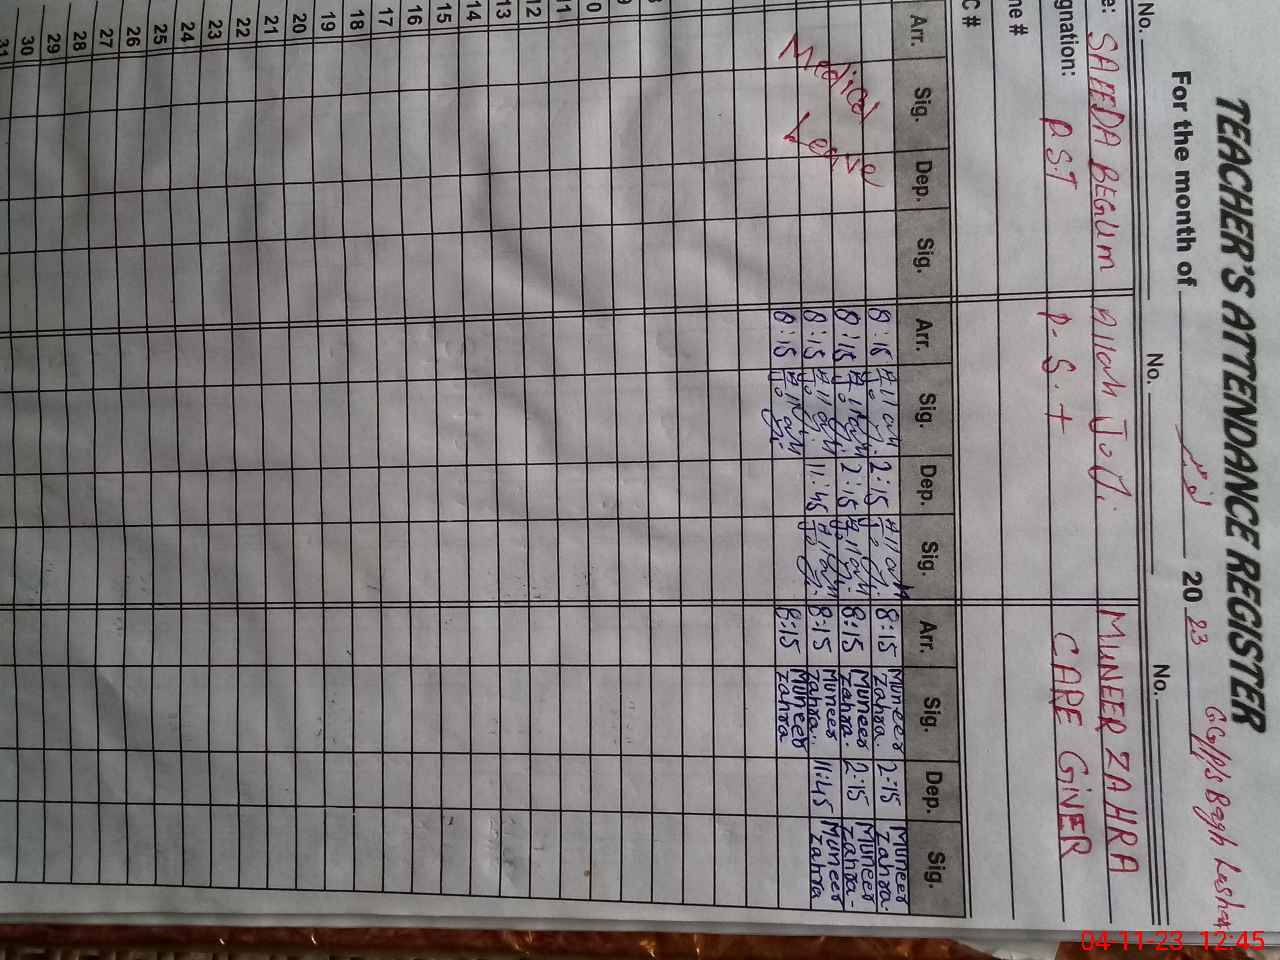 TEACHER'S ATTENDANCE REGISTER
For the month of نومبر 20 23
No. No. No.
e: SAEEDA BEGUM Allah Jo
MUNEER ZAHRA
gnation: P.S.T P. S. T CARE GIVER
ne #
C #
Arr. Sig. Dep. Sig. Arr. Sig. Dep. Sig. Arr. Sig. Dep. Sig.
Medical Leave
8:15 Allah 2:15 Allah 8:15 Muneer Zahra. 2:15 Muneer Zahra.
8:15 Allah 2:15 Allah 8:15 Muneer Zahra. 2:15 Muneer Zahra-
8:15 Allah 11:45 Allah 8:15 Muneer Zahra. 11:45 Muneer Zahra
8:15 Allah 8:15 Muneer Zahra
8
9
0
11
12
13
14
15
16
17
18
19
20
21
22
23
24
25
26
27
28
29
30
31
04-11-23 12:45